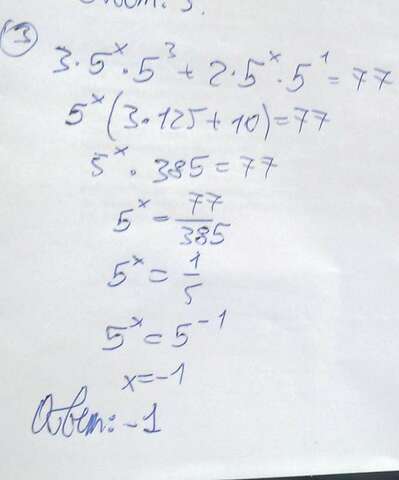 Ответ: 3.
③
3·5ˣ·5³+2·5ˣ·5¹=77
5ˣ(3·125+10)=77
5ˣ·385=77
5ˣ=77/385
5ˣ=1/5
5ˣ=5⁻¹
x=-1
Ответ: -1